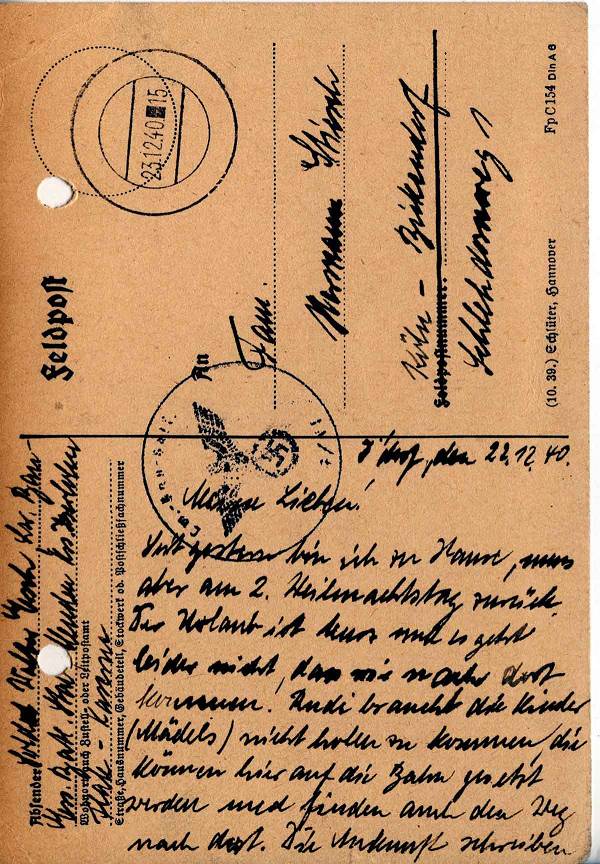 Feldpost
23.12.40 15
An
Fam.
Hermann
Köln - Bickendorf
Feldpostnummer:
1
(10. 39.) Schlüter, Hannover
Fp C 154 Din A 6
Absender:
Wohnort, auch Zustell- oder Leitpostamt
Straße, Hausnummer, Gebäudeteil, Stockwerk od. Postschließfachnummer
D'dorf, den 22.12.40.
Meine Lieben!
Seit gestern bin ich zu Hause, muss
aber am 2. Weihnachtstag zurück.
Der Urlaub ist kurz und es geht
leider nicht, dass wir nach dort
kommen. Rudi braucht die Kinder
(Mädels) nicht holen zu kommen, die
können hier auf die Bahn gesetzt
werden und finden auch den Weg
nach dort. Die Ankunft schreiben